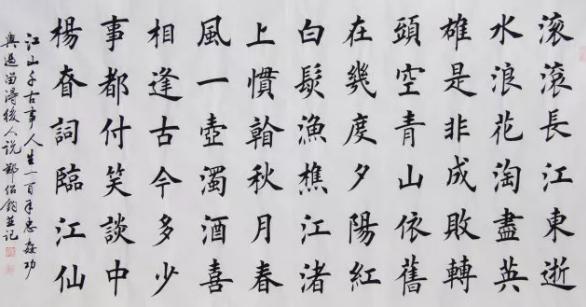 滚滚長江東逝
水浪花淘盡英
雄是非成敗轉
頭空青山依舊
在幾度夕陽紅
白髮漁樵江渚
上慣看秋月春
風一壺濁酒喜
相逢古今多少
事都付笑談中
楊眘詞臨江仙
江山千古事人生一百年忠姦功
與過留得後人說鄭並記